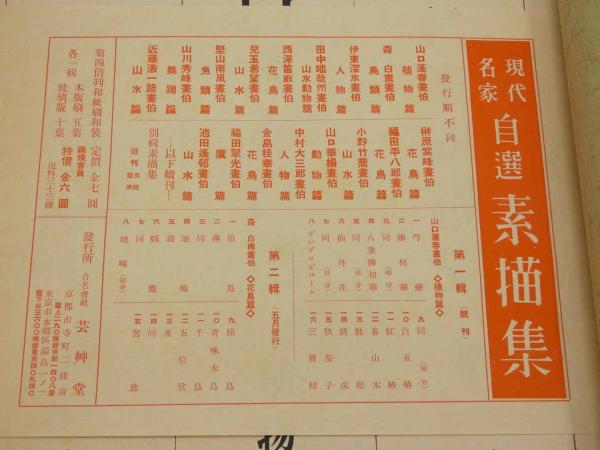 現代
名家
自選素描集
發行順不同
山口蓬春畫伯
植物篇
森白甫畫伯
鳥類篇
伊東深水畫伯
人物篇
田中咄哉州畫伯
山水動物篇
西澤笛畝畫伯
花鳥篇
兒玉希望畫伯
山水篇
堅山南風畫伯
魚類篇
山川秀峰畫伯
舞踊篇
近藤浩一路畫伯
山水篇
榊原紫峰畫伯
花鳥篇
福田平八郎畫伯
花鳥篇
小野竹喬畫伯
山水篇
山口華楊畫伯
動物篇
中村大三郎畫伯
人物篇
金島桂華畫伯
花鳥篇
福田翠光畫伯
鷹篇
池田遙邨畫伯
山水篇
―以下續刊―
別輯素描集
近刊
菊四倍判和紙刷和裝
各一輯 木版刷五葉
玻璃版十葉
定價金七圓
繼續會員
特價金六圓
送料三十三錢
第一輯(既刊)
山口蓬春畫伯◇植物篇◇
二佛相華
三同(部分)
四八重佛相華
五同
六仙外花
七同(部分)
八デンドロビューム
九同(部分)
一〇白玉椿
一一紅椿
一二泰山木
一三枇杷
一四胡瓜
一五秋茄子
一六三寶柑
第二輯(五月發行)
森白甫畫伯◇花鳥篇◇
二燕
三同
四地鳩
五鷄
六鷹
七同
八地鳩(部分)
九椋鳥
一〇靑啄木鳥
一一千鳥
一二五位鷺
一三雀
一四同
一五鴛鴦
發行所 合名會社 芸艸堂
京都市寺町二條南
電上二九〇振替京都一四〇八番
東京市本鄕區湯島一ノ一
電下谷三六〇〇振替東京四〇九四〇
物